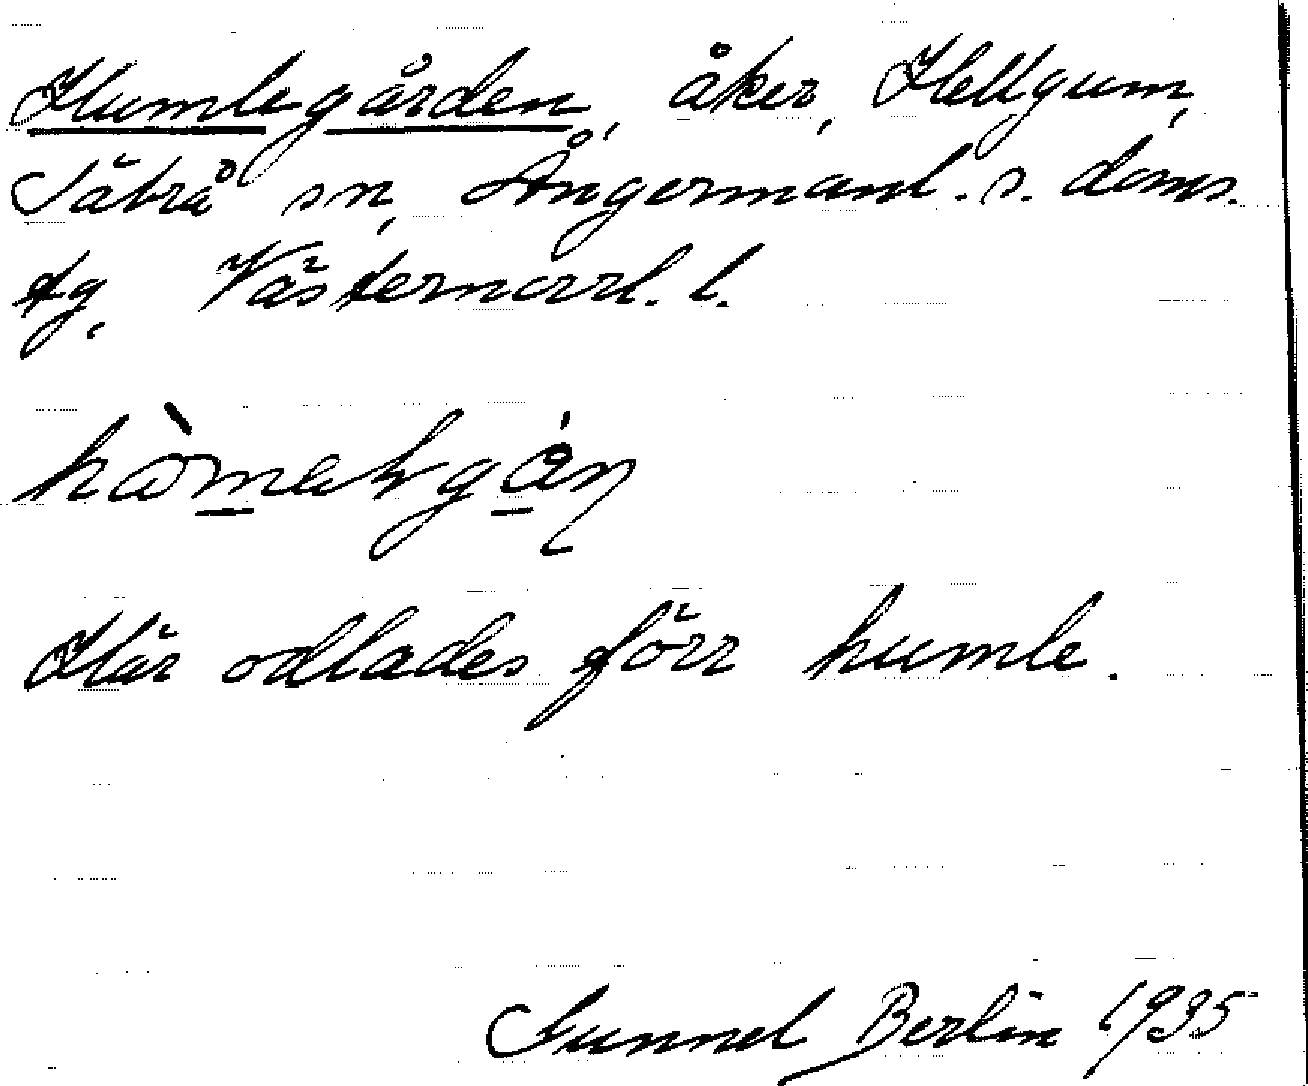 Humlegården, åker, Hellgum,
Säbrå sn, Ångermanl. s. doms.
tg, Västernorrl. l.
Här odlades förr humle.
Gunnel Berlin 1935